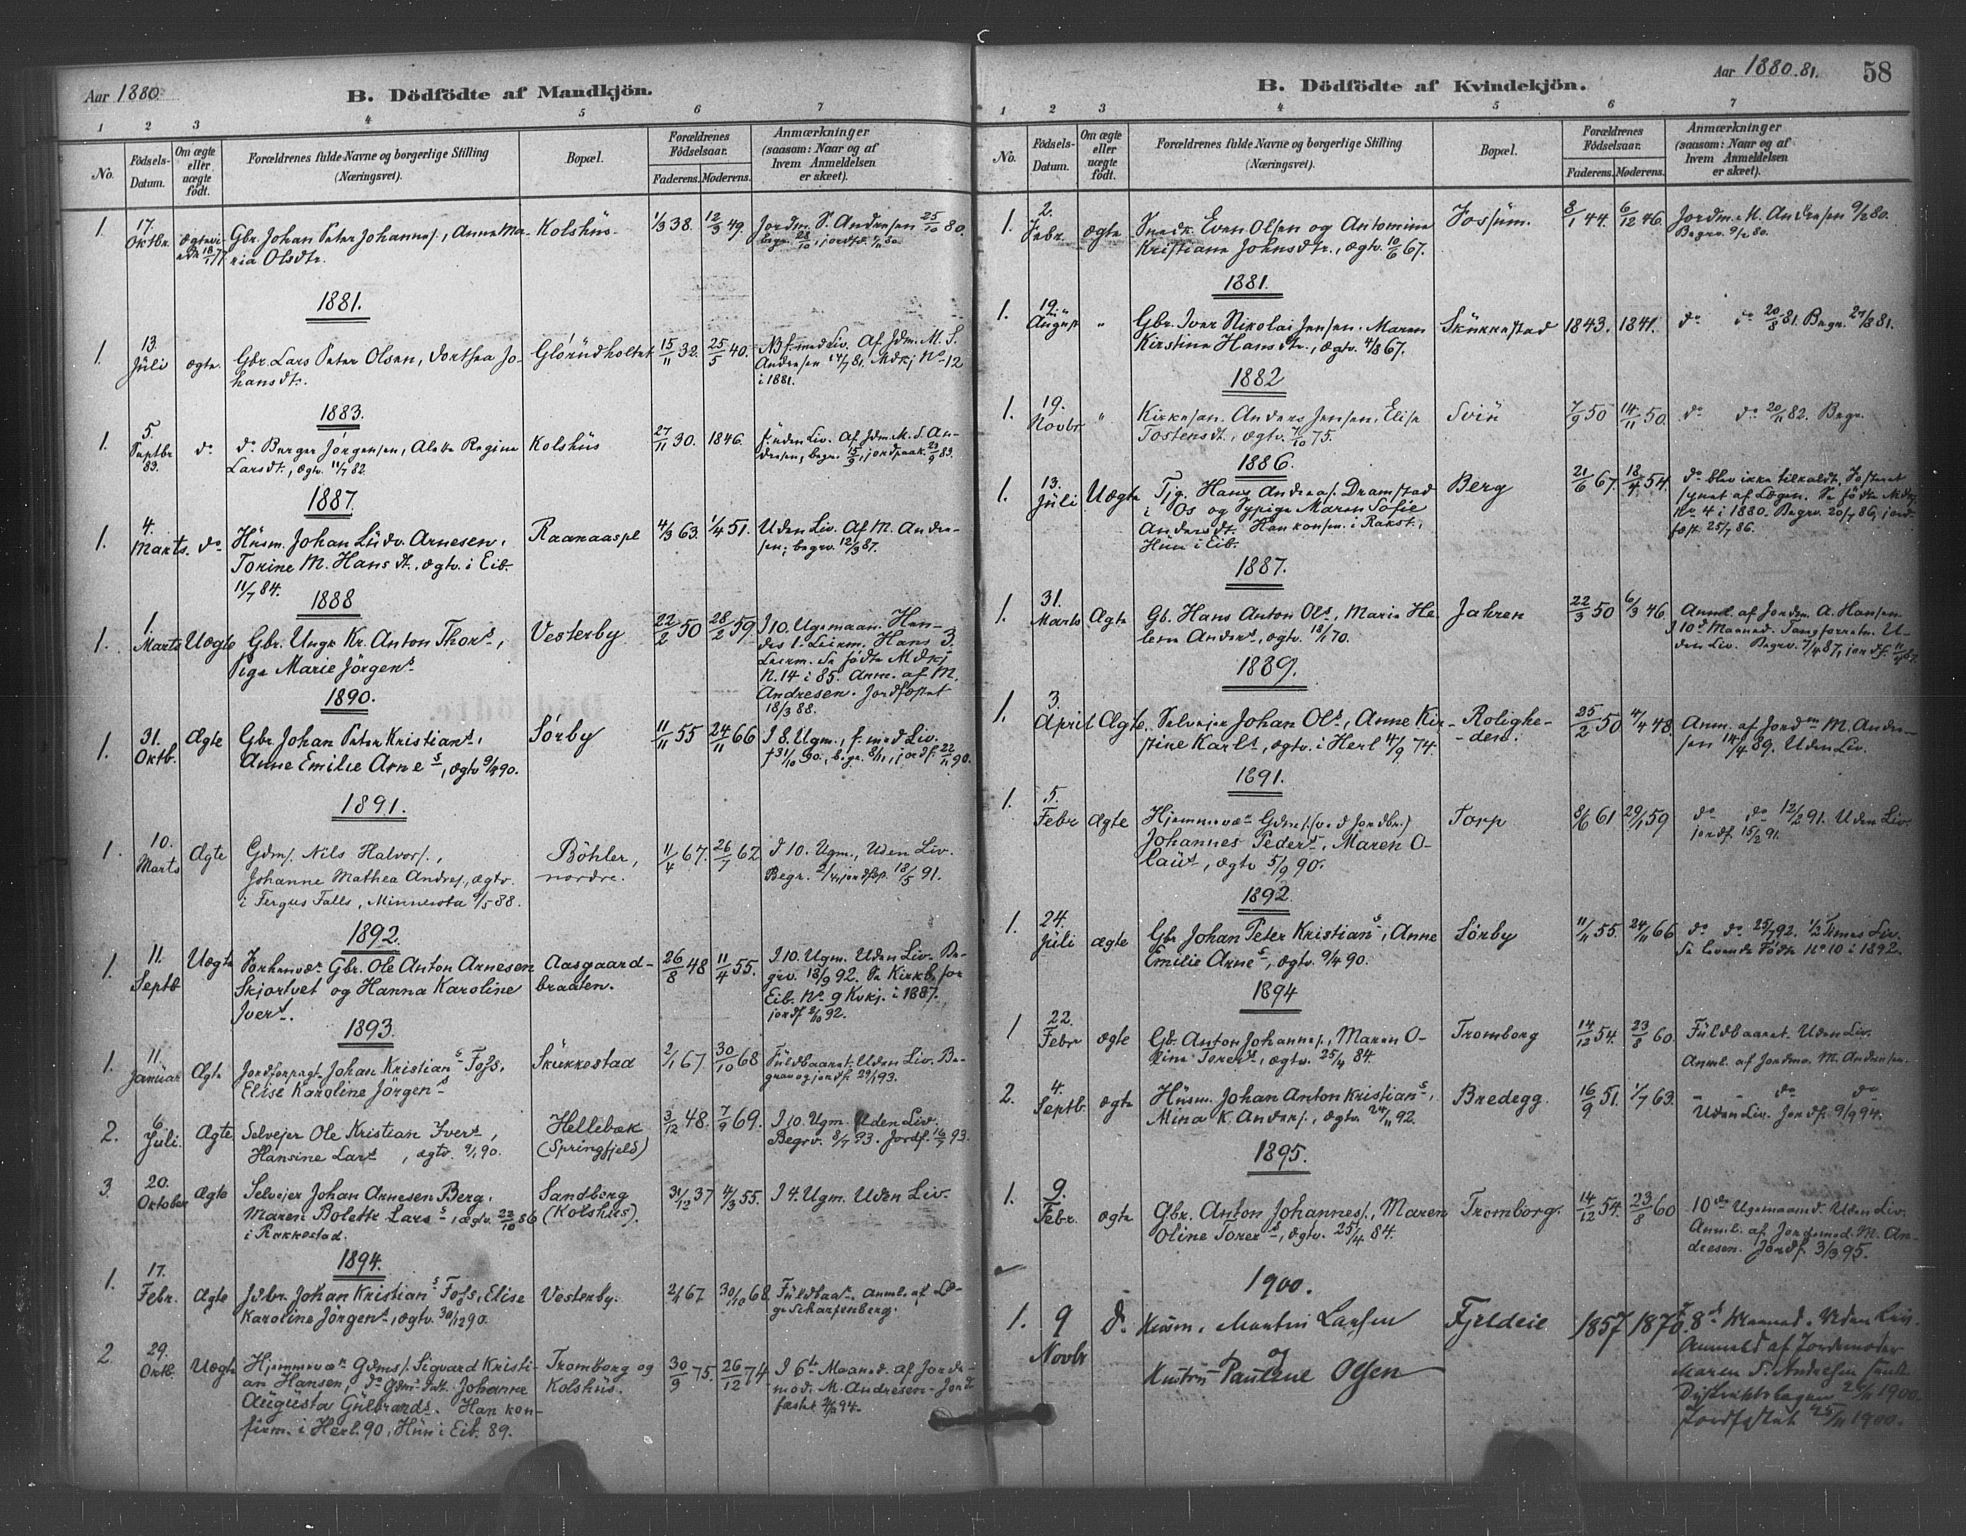 Aar 1880.
B. Dödfödte af Mandkjön.
1 2 3 4 5 6 7
No.
Födsels-Datum.
Om ægte eller uægte födt.
Forældrenes fulde Navne og borgerlige Stilling (Næringsvei).
Bopæl.
Forældrenes Födselsaar.
Faderens. Moderens.
Anmærkninger (saasom: Naar og af hvem Anmeldelsen er skeet).
1. 17. Oktbr. Gbr. Johan Peter Johannes., Anne Ma- Kolshüs 1/3 38. 12/3 49. Jordm. S. Andersen 25/10 80.
ria Olsdtr. begr. 28/10, jordf.
1881.
1. 13 Jüli ægte. Gbr. Lars Peter Olsen, Dorthea Jo- Glörüdholtet 15/11 32. 25/5 40. Nf. med Liv. Af Jdm. M. S.
hansdt. Andresen 14/7 81. Mdkj No 12
i 1881.
1883.
1. 5. Septbr 83. do do Børger Jörgensen, Alette Regine Kolshüs 27/11 30. 1846. f. uden Liv. Af Jdm. M. S. An-
Larsdt., ægtv. 11/7 82. dresen, begr. 15/9, jordpaak. 23/9 83.
1887.
1. 4. Marts. do Hüsm. Johan Lüdv. Arnesen, Raanaaspl 4/3 63. 1/4 51. Uden Liv. Af M. Andre-
Torine M. Hansdt., ægtv. i Eib. sen, begrv. 12/3 87.
11/7 84.
1888
1. 1. Marts Uægte Gbr. Ungk. Kr. Anton Thors., Vesterby 22/2 50 28/2 59 I 10. Ugemaan. Hen-
Pige Marie Jörgens. des 1. Leierm. Hans 3.
Leierm. Se fødte Mdkj
N. 14 i 85. Anm. af M.
Andresen. Jordfæstet
18/3 88.
1890.
1. 31. Oktb. Ægte Gbr. Johan Peter Kristians., Sørby 11/11 55 24/11 66 I 8. Ugm., f. med Liv.
Anne Emilie Arnes., ægtv 9/4 90. † 31/10 90., begr. 8/11, jordf. 22/11 90.
1891.
1. 10. Marts Ægte Gdms. Nils Halvors., Böhler, 11/4 67. 26/7 62 I 10. Ugm., Uden Liv.
Johanne Mathea Andres., ægtv. nordre. Begr. 2/4, jordfsp. 18/5 91.
i Fergus Falls, Minnesota 9/5 88.
1892.
1. 11. Septb. Uægte Forhenvær. Gbr. Ole Anton Arnesen Aasgaard- 26/8 48 11/4 55. I 10. Ugm. Uden Liv. Be-
Skjortvet og Hanna Karoline braaten. grv. 18/9 92. Se Kirkb. for
Ivers. Eib. No. 9 Kvkj. i 1887.
jordf 2/10 92.
1893.
1. 11. Januar Ægte Jordforpagt. Johan Kristians. Foss, Skükkestad 2/1 67. 30/10 68 Füldbaaret. Uden Liv. Be-
Elise Karoline Jörgens. grav og jordf. 29/1 93.
2. 6. Jüli. Ægte Selvejer Ole Kristian Ivers., Hellebæk 3/12 48. 7/9 69. I 10. Ugm. Uden Liv.
Hansine Lars., ægtv. 9/1 90. (Springfjeld) Begrv. 8/7 93. Jordf. 16/7 93.
3. 20. Oktober Ægte Selvejer Johan Arnesen Berg, Sandberg 31/12 37 4/3 55. I 4. Ugm. Uden Liv.
Maren Bolette Lars., ægtv. 23/10 86 (Kolshüs).
i Rakkestad.
1894.
1. 17. Febr. Ægte Jdbr. Johan Kristians. Foss, Elise Vesterby. 2/1 67 30/10 68 Füldbaa. Anml. af Læ-
Karoline Jörgens., ægtv. 30/12 90. ge Scharfenberg.
2. 29. Oktb. Uægte Hjemmevær. Gdms. Sigvard Kristi- Tromborg og 30/9 75. 26/12 74 I 6te Maaned. af Jorde-
an Hansen, do Gdm. dat. Johanne Kolshüs. mod. M. Andresen. Jord-
Aügüsta Gülbrands. Han kon- fæstet 94.
firm. i Herl. 90, Hün i Eib. 89.
Aar 1880.81. 58
B. Dödfödte af Kvindekjön.
1 2 3 4 5 6 7
No.
Födsels-Datum.
Om ægte eller uægte födt.
Forældrenes fulde Navne og borgerlige Stilling (Næringsvei).
Bopæl.
Forældrenes Födselsaar.
Faderens. Moderens.
Anmærkninger (saasom: Naar og af hvem Anmeldelsen er skeet).
1. 2. Febr. ægte Snedk. Even Olsen og Antomine Fossüm. 8/1 44. 6/12 46. Jordm. M. Andresen 9/2 80.
Kristiane Johnsdtr., ægtv. 10/6 67. Begrv. 9/2 80.
1881.
1. 19. Aügüst " Gbr. Iver Nikolai Jensen, Maren Skükkestad 1843. 1841. do do 20/8 81. Begr. 27/8 81.
Kirstine Hansdtr., ægtv. 4/8 67.
1882
1. 19. Novbr " Kirkesan. Anders Jensen, Elise Svin 7/9 50 14/11 50. do do 20/11 82. Begr.
Tostensdt., ægtv. 75.
1886.
1. 13. Jüli Uægte Tjg. Hans Andreas. Dramstad Berg 21/6 67. 18/4 54. do blev ikke tilkaldt. Fosteret
i Os og Pige Maren Sofie synet af Lægen. Se fødte Mdkj
Andersdt. Han konf. i Rakst., No 4 i 1880. Begrv. 20/7 86, jord-
Hün i Eib. fæst. 25/7 86.
1887.
1. 31. Marts Ægte Gb. Hans Anton Ols., Marie He- Jahren 22/3 50 6/3 46. Anml. af Jordm. A. Hansen
lene Anders., ægtv. 70. I 10d Maaned. Tangforretn. U-
den Liv. Begrv. 7/4 87, jordf. 11/4 87.
1889.
1. 3. April Ægte Selvejer Johan Ols., Anne Kir- Rolighe- 25/2 50 4/4 48. Anm. af Jordm. M. Andre-
stine Karls., ægtv. i Herl 4/9 74. -den. sen 14/4 89. Uden Liv.
1891.
1. 5. Febr Ægte Hjemmevær. Gdms. (ved Jordbr.) Torp 8/6 61 29/1 59 do do 12/2 91. Uden Liv.
Johannes Peders., Maren O- jordf. 15/2 91.
laüs., ægtv 5/9 90.
1892.
1. 24. Jüli ægte Gbr. Johan Peter Kristians., Anne Sörby 11/11 55. 24/11 66 do do 25/7 92. ½ Times Liv.
Emilie Arnes., ægtv. 9/4 90. Se levende Fødte No 10 i 1892.
1894
1 22. Febr ægte Gb. Anton Johannes., Maren O- Tromborg 14/12 54. 23/8 60. Füldbaaret. Uden Liv.
line Torers., ægtv. 25/4 84. Anml. af Jordmo. M. Andresen.
2. 4. Septb. ægte Hüsm. Johan Anton Kristians., Bredegg. 16/9 51. 1/7 63. do do
Mina K. Anders., ægtv. 24/11 92. Uden Liv. Jordf. 9/9 94.
1895.
1. 9. Febr. ægte Gbr. Anton Johannes., Maren Tromborg. 14/12 54. 23/8 60 10de Ugemaaned. Uden Liv.
Oline Torers., ægtv. 25/4 84. Anml. af Jordemod. M. An-
dresen. Jordf. 3/3 95.
1900.
1. 9 Novbr do Husm. Martin Larsen Fjeldeie 1857 1870 8d Maaned. Uden Liv.
og Anmeld af Jordemoder
Hustru Pauline Olsen Maren S. Andresen samt
Distriktslægen 26/11 1900.
Jordfæstet 25/11 1900.